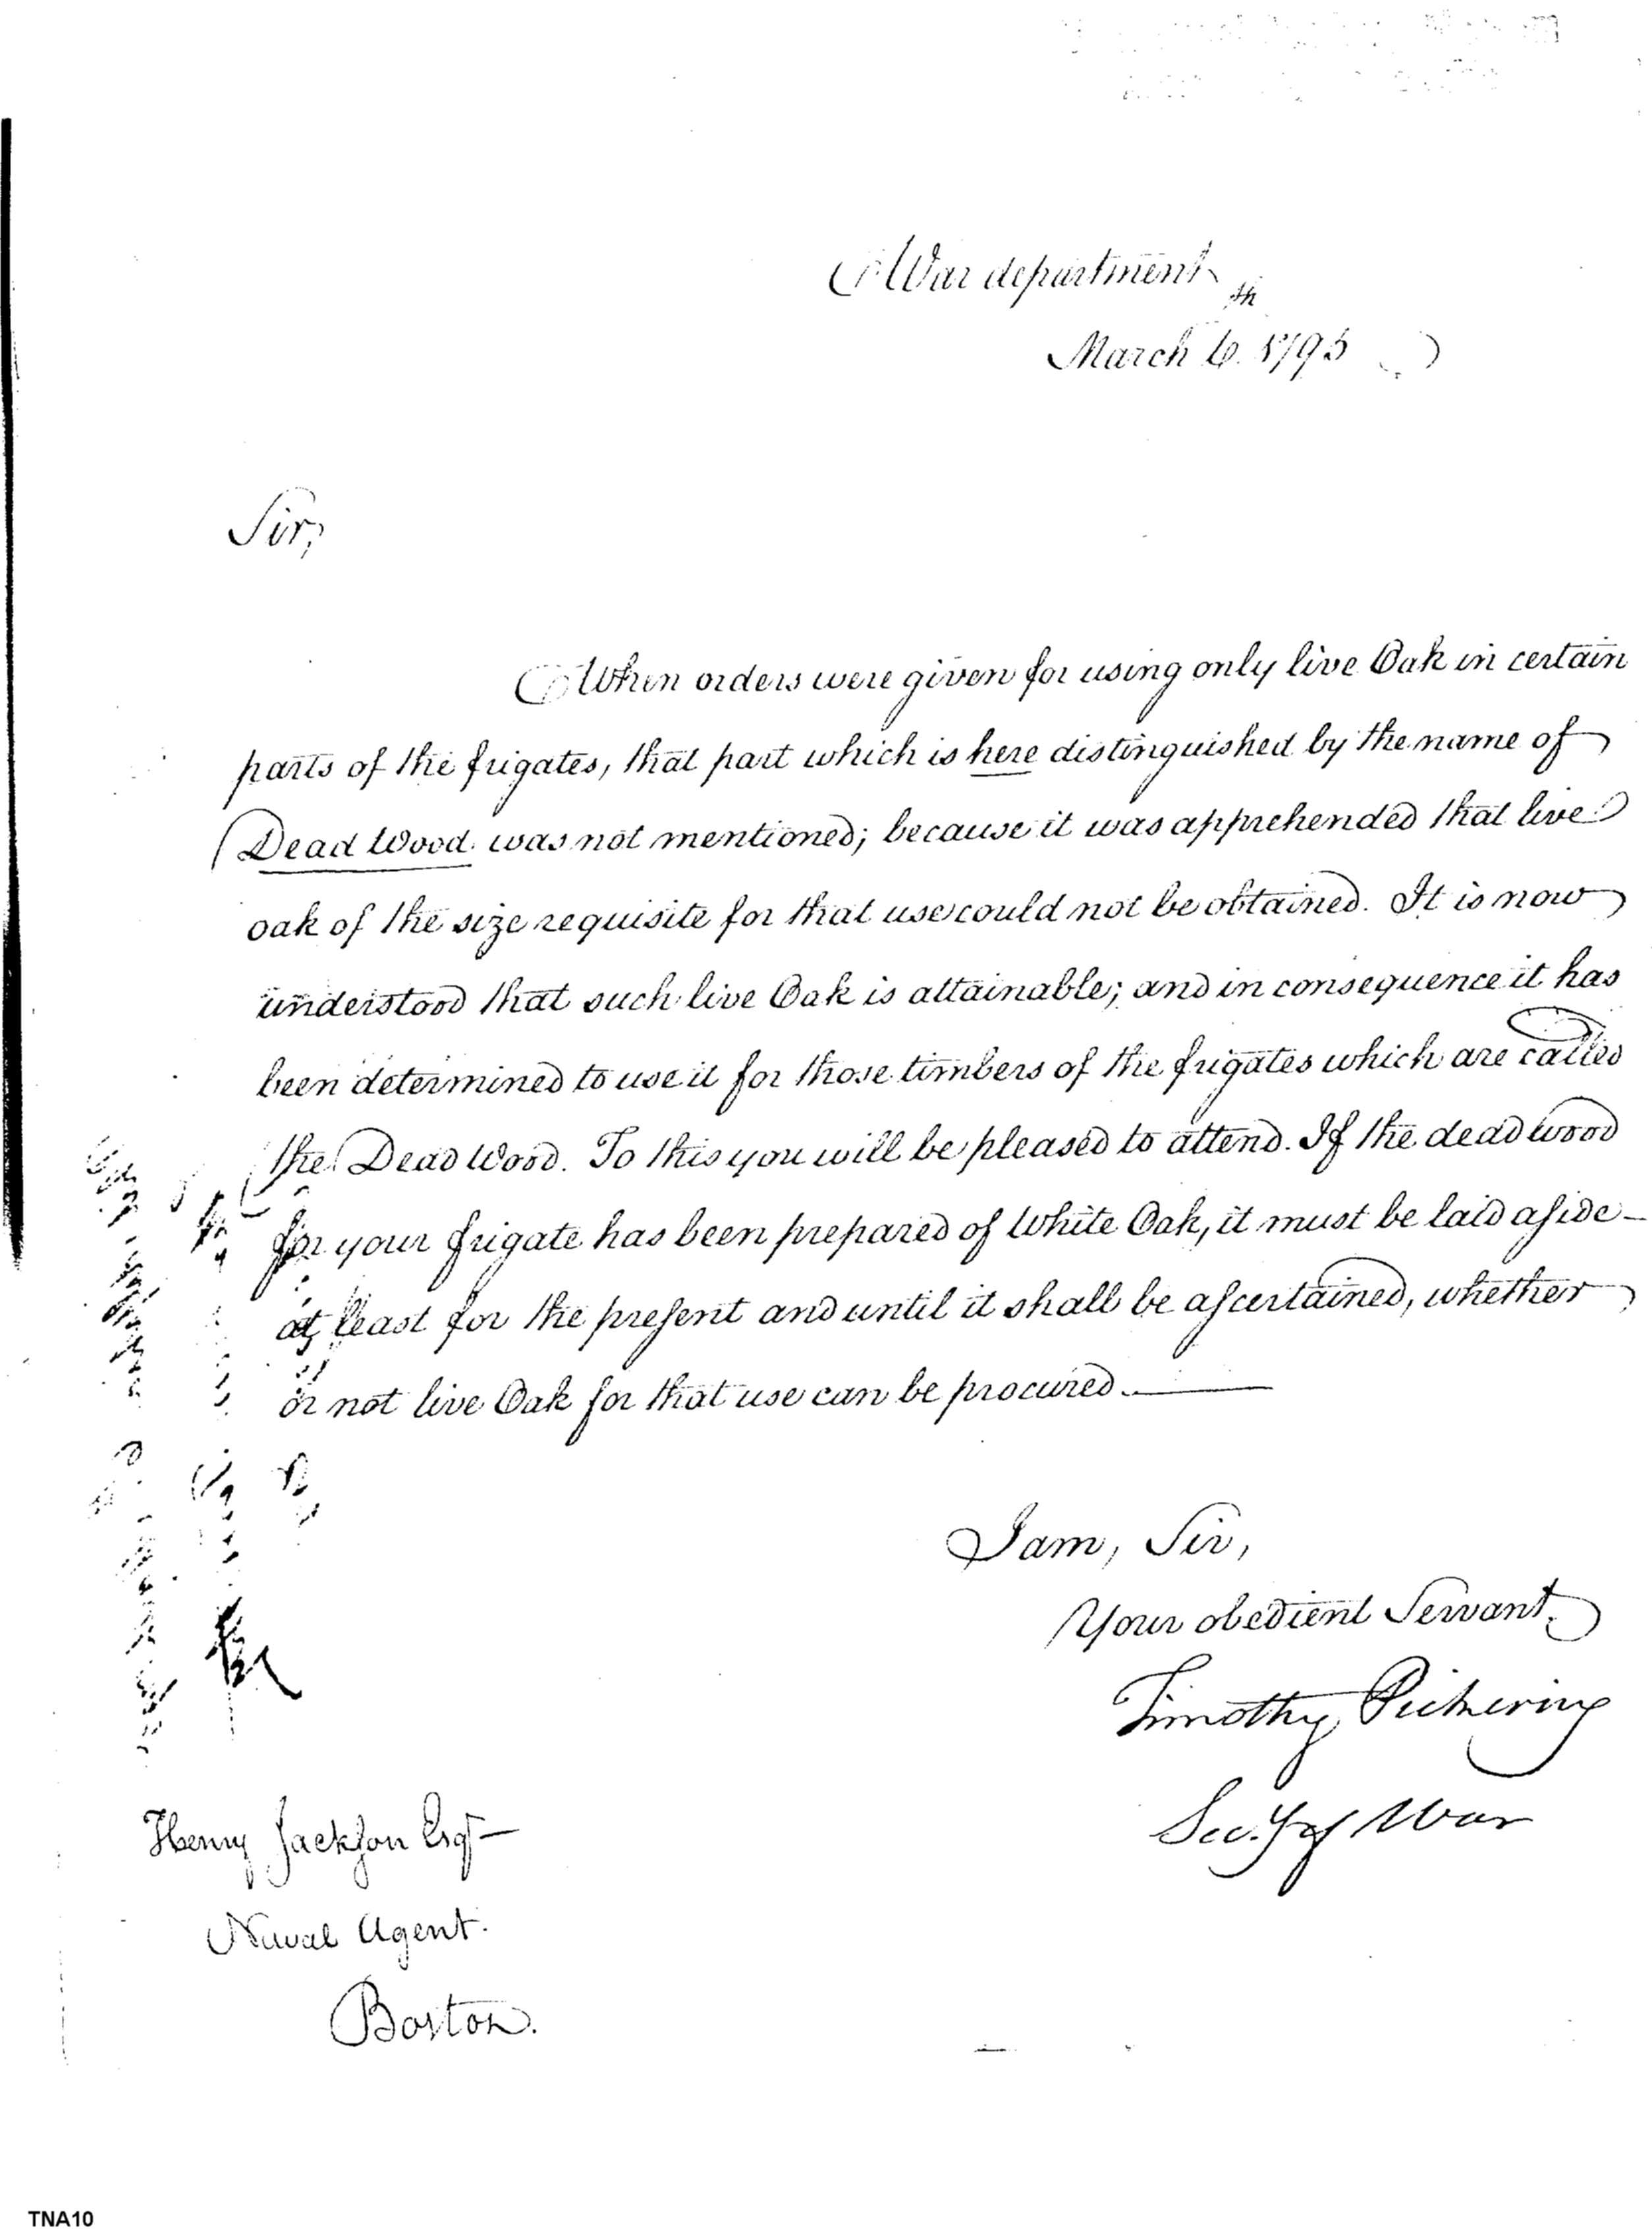 War department
March 6.th 1795
Sir,
When orders were given for using only live Oak in certain
parts of the frigates, that part which is here distinguished by the name of
Dead Wood was not mentioned; because it was apprehended that live
oak of the size requisite for that use could not be obtained. It is now
understood that such live Oak is attainable; and in consequence it has
been determined to use it for those timbers of the frigates which are called
the Dead Wood. To this you will be pleased to attend. If the dead wood
for your frigate has been prepared of White Oak, it must be laid aside —
at least for the present and until it shall be ascertained, whether
or not live Oak for that use can be procured. —
I am, Sir,
Your obedient Servant,
Timothy Pickering
Secy of War
Henry Jackson Esqr —
Naval Agent.
Boston.
TNA10